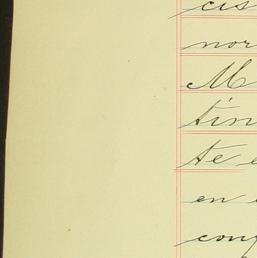 cis
nor
M
tin
te
en
con